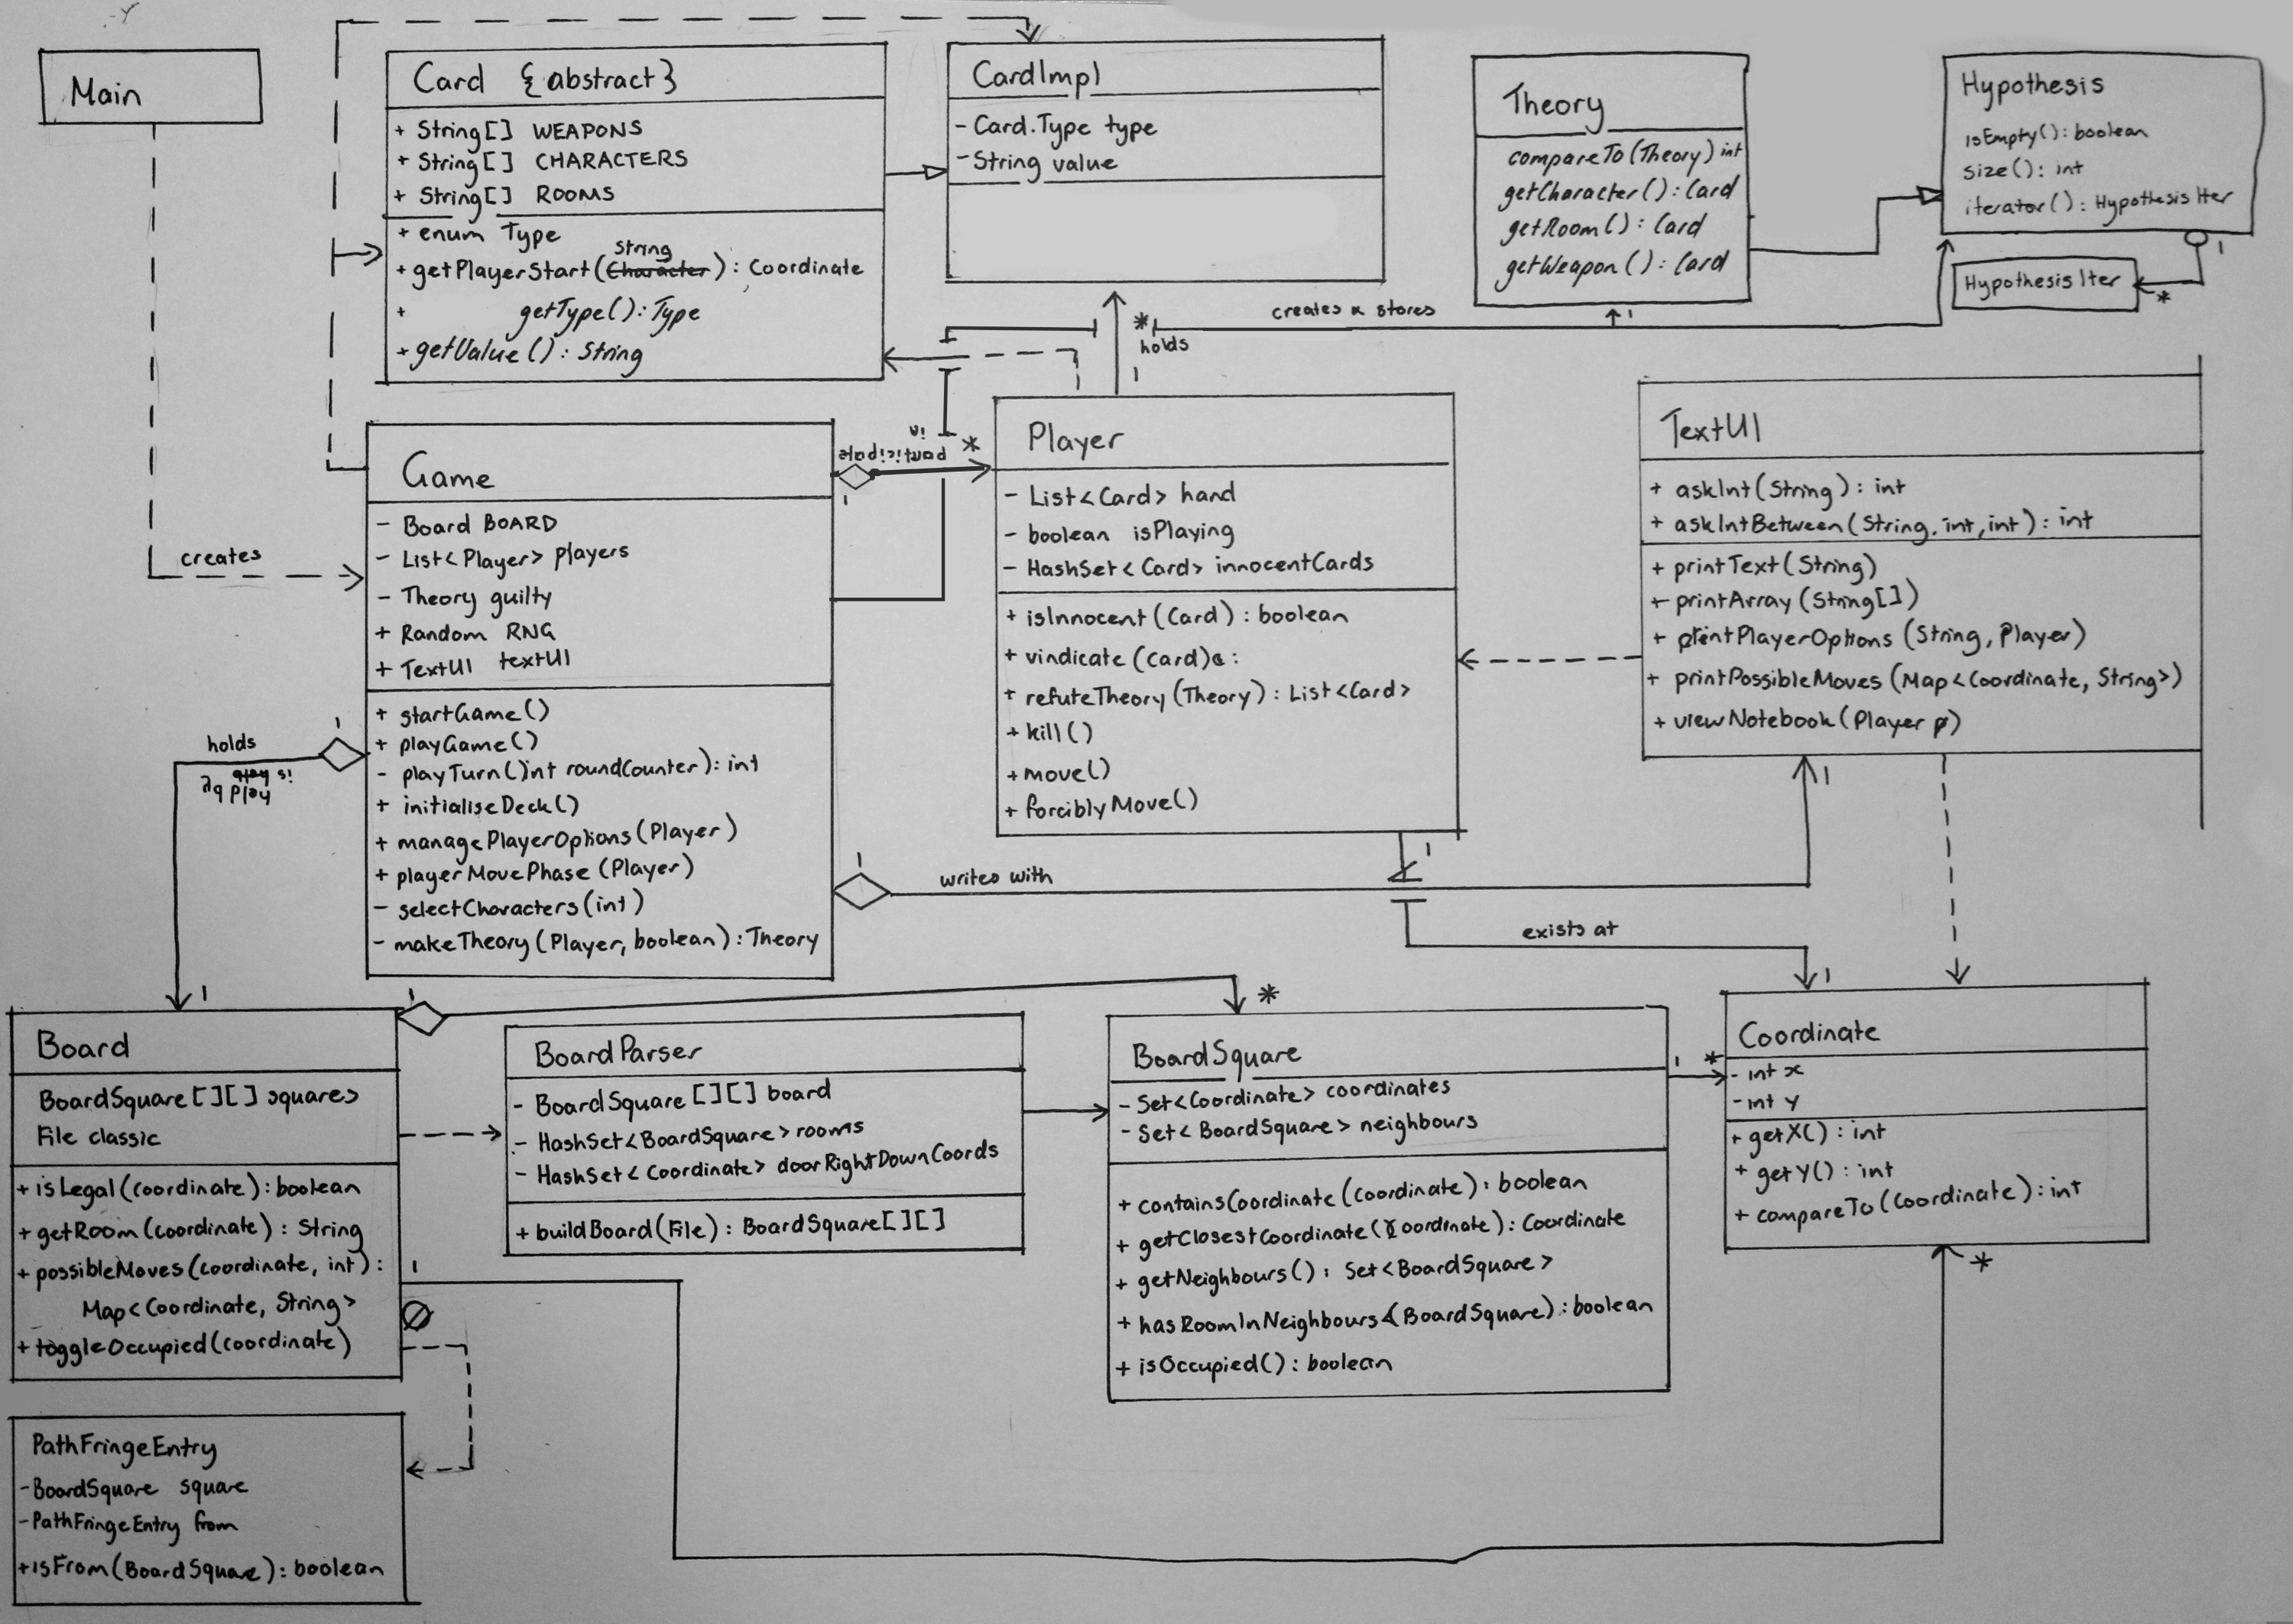 Main
Card {abstract}
+ String[] WEAPONS
+ String[] CHARACTERS
+ String[] ROOMS
+ enum Type
String
+ getPlayerStart(Character) : Coordinate
+ getType() : Type
+ getValue() : String
CardImpl
- Card.Type type
- String value
Theory
compareTo(Theory) int
getCharacter() : Card
getRoom() : Card
getWeapon() : Card
Hypothesis
isEmpty() : boolean
size() : int
iterator() : HypothesisIter
1
HypothesisIter
*
creates & stores
1
*
holds
1
creates
Game
- Board BOARD
- List<Player> players
- Theory guilty
+ Random RNG
+ TextUI textUI
+ startGame()
+ playGame()
- playTurn()int roundCounter) : int
+ initialiseDeck()
+ managePlayerOptions(Player)
+ playerMovePhase(Player)
- selectCharacters(int)
- makeTheory(Player, boolean) : Theory
in
participate
*
1
Player
- List<Card> hand
- boolean isPlaying
- HashSet<Card> innocentCards
+ isInnocent(Card) : boolean
+ vindicate(Card) :
+ refuteTheory(Theory) : List<Card>
+ kill()
+ move()
+ forciblyMove()
TextUI
+ askInt(String) : int
+ askIntBetween(String, int, int) : int
+ printText(String)
+ printArray(String[])
+ printPlayerOptions (String, Player)
+ printPossibleMoves (Map<Coordinate, String>)
+ viewNotebook(Player p)
1
holds
is held
held by
1
1
writes with
1
1
exists at
1
Board
BoardSquare[][] squares
File classic
+ isLegal(Coordinate) : boolean
+ getRoom(Coordinate) : String
+ possibleMoves(Coordinate, int) :
Map<Coordinate, String>
+ toggleOccupied(Coordinate)
1
*
1
BoardParser
- BoardSquare[][] board
- HashSet<BoardSquare> rooms
- HashSet<Coordinate> doorRightDownCoords
+ buildBoard(File) : BoardSquare[][]
BoardSquare
- Set<Coordinate> coordinates
- Set<BoardSquare> neighbours
+ containsCoordinate(Coordinate) : boolean
+ getClosestCoordinate(Coordinate) : Coordinate
+ getNeighbours() : Set<BoardSquare>
+ hasRoomInNeighbours(BoardSquare) : boolean
+ isOccupied() : boolean
1
*
Coordinate
- int x
- int y
+ getX() : int
+ getY() : int
+ compareTo(Coordinate) : int
*
PathFringeEntry
- BoardSquare square
- PathFringeEntry from
+ isFrom(BoardSquare) : boolean